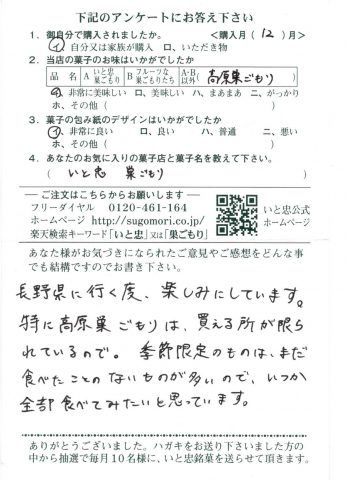 下記のアンケートにお答え下さい
1．御自分で購入されましたか。 <購入月(12)月>
イ、自分又は家族が購入 ロ、いただき物
2．当店の菓子のお味はいかがでしたか
品名 A いと忠巣ごもり B フルーツな巣ごもりたち A・B以外 高原巣ごもり
イ、非常に美味しい ロ、美味しい ハ、まあまあ ニ、がっかり
ホ、その他（ ）
3．菓子の包み紙のデザインはいかがでしたか
イ、非常に良い ロ、良い ハ、普通 ニ、悪い
ホ、その他（ ）
4．あなたのお気に入りの菓子店と菓子名を教えて下さい。
（ いと忠 巣ごもり ）
ご注文はこちらからお願いします
フリーダイヤル 0120-461-164
ホームページ http://sugomori.co.jp/
楽天検索キーワード「いと忠」又は「巣ごもり」
いと忠公式
ホームページ
あなた様がお気づきになられたご意見やご感想をどんな事
でも結構ですのでお書き下さい。
長野県に行く度、楽しみにしています。
特に高原巣ごもりは、買える所が限ら
れているので。季節限定のものは、まだ
食べたことのないものが多いので、いつか
全部食べてみたいと思っています。
ありがとうございました。ハガキをお送り下さいました方の
中から抽選で毎月10名様に、いと忠銘菓を送らせて頂きます。